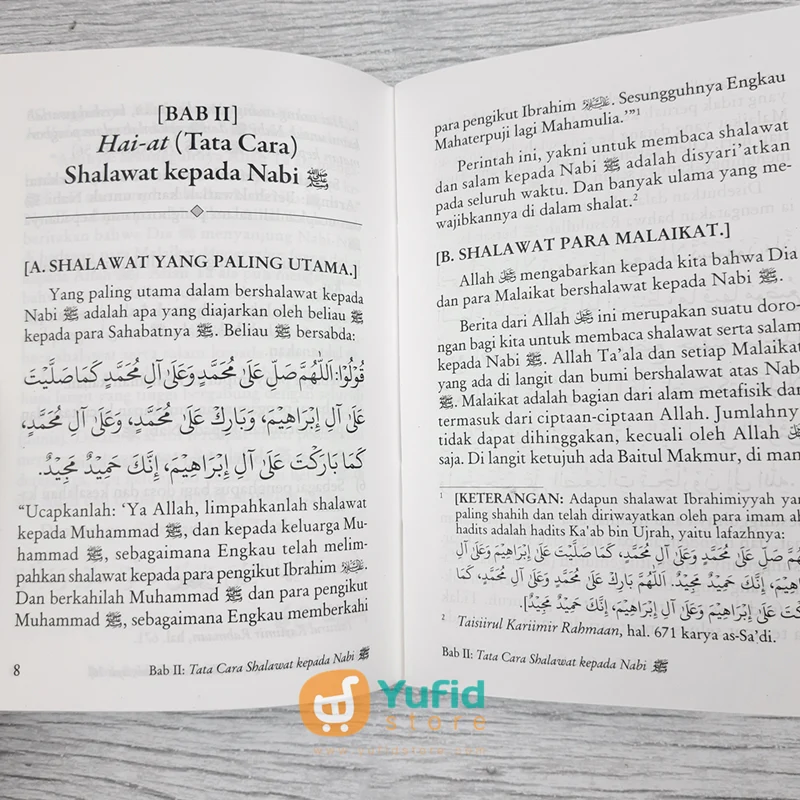 [BAB II]
Hai-at (Tata Cara)
Shalawat kepada Nabi ﷺ
[A. SHALAWAT YANG PALING UTAMA.]
Yang paling utama dalam bershalawat kepada
Nabi ﷺ adalah apa yang diajarkan oleh beliau ﷺ
kepada para Sahabatnya ﷺ. Beliau ﷺ bersabda:
قُولُوْا: اَللّٰهُمَّ صَلِّ عَلَىٰ مُحَمَّدٍ وَعَلَىٰ آلِ مُحَمَّدٍ كَمَا صَلَّيْتَ
عَلَىٰ آلِ إِبْرَاهِيْمَ، وَبَارِكْ عَلَىٰ مُحَمَّدٍ، وَعَلَىٰ آلِ مُحَمَّدٍ،
كَمَا بَارَكْتَ عَلَىٰ آلِ إِبْرَاهِيْمَ، إِنَّكَ حَمِيْدٌ مَجِيْدٌ.
“Ucapkanlah: ‘Ya Allah, limpahkanlah shalawat
kepada Muhammad ﷺ, dan kepada keluarga Mu-
hammad ﷺ, sebagaimana Engkau telah melim-
pahkan shalawat kepada para pengikut Ibrahim
Dan berkahilah Muhammad ﷺ dan para pengikut
Muhammad ﷺ, sebagaimana Engkau memberkahi
8
Bab II: Tata Cara Shalawat kepada Nabi ﷺ
para pengikut Ibrahim . Sesungguhnya Engkau
Mahaterpuji lagi Mahamulia.’”¹
Perintah ini, yakni untuk membaca shalawat
dan salam kepada Nabi ﷺ adalah disyari’atkan
pada seluruh waktu. Dan banyak ulama yang me-
wajibkannya di dalam shalat.²
[B. SHALAWAT PARA MALAIKAT.]
Allah ﷻ mengabarkan kepada kita bahwa Dia
dan para Malaikat bershalawat kepada Nabi ﷺ.
Berita dari Allah ﷻ ini merupakan suatu doro-
ngan bagi kita untuk membaca shalawat serta salam
kepada Nabi ﷺ. Allah Ta’ala dan setiap Malaikat
yang ada di langit dan bumi bershalawat atas Nabi
ﷺ. Malaikat adalah bagian dari alam metafisik dan
termasuk dari ciptaan-ciptaan Allah. Jumlahny
tidak dapat dihinggakan, kecuali oleh Allah ﷻ
saja. Di langit ketujuh ada Baitul Makmur, di man
¹ [KETERANGAN: Adapun shalawat Ibrahimiyyah yan
paling shahih dan telah diriwayatkan oleh para imam ah
hadits adalah hadits Ka’ab bin Ujrah, yaitu lafazhnya:
صَلِّ عَلَىٰ مُحَمَّدٍ وَعَلَىٰ آلِ مُحَمَّدٍ، كَمَا صَلَّيْتَ عَلَىٰ إِبْرَاهِيْمَ وَعَلَىٰ آلِ
إِنَّكَ حَمِيْدٌ مَجِيْدٌ. اَللّٰهُمَّ بَارِكْ عَلَىٰ مُحَمَّدٍ وَعَلَىٰ آلِ مُحَمَّدٍ، كَمَا
عَلَىٰ إِبْرَاهِيْمَ وَعَلَىٰ آلِ إِبْرَاهِيْمَ، إِنَّكَ حَمِيْدٌ مَجِيْدٌ].
² Taisiirul Kariimir Rahmaan, hal. 671 karya as-Sa’di.
Bab II: Tata Cara Shalawat kepada Nabi ﷺ
Yufid
store